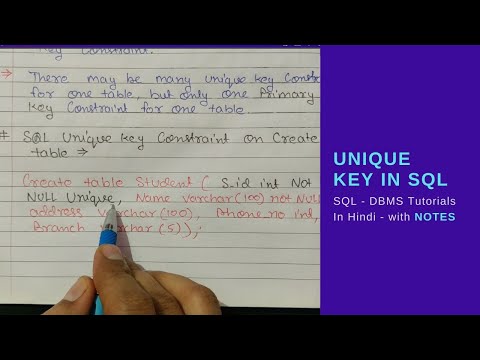 Key Constraint.
→ There may be many unique key Const
for one table, but only one Primary
Key Constraint for one table.
# SQL Unique key Constraint on Create
table ⇒
Create table Student ( S_id int Not
NULL Unique, Name varchar(100) not NULL
address varchar(100), Phone_no int,
Branch varchar (5));
UNIQUE
KEY IN SQL
SQL - DBMS Tutorials
In Hindi - with NOTES